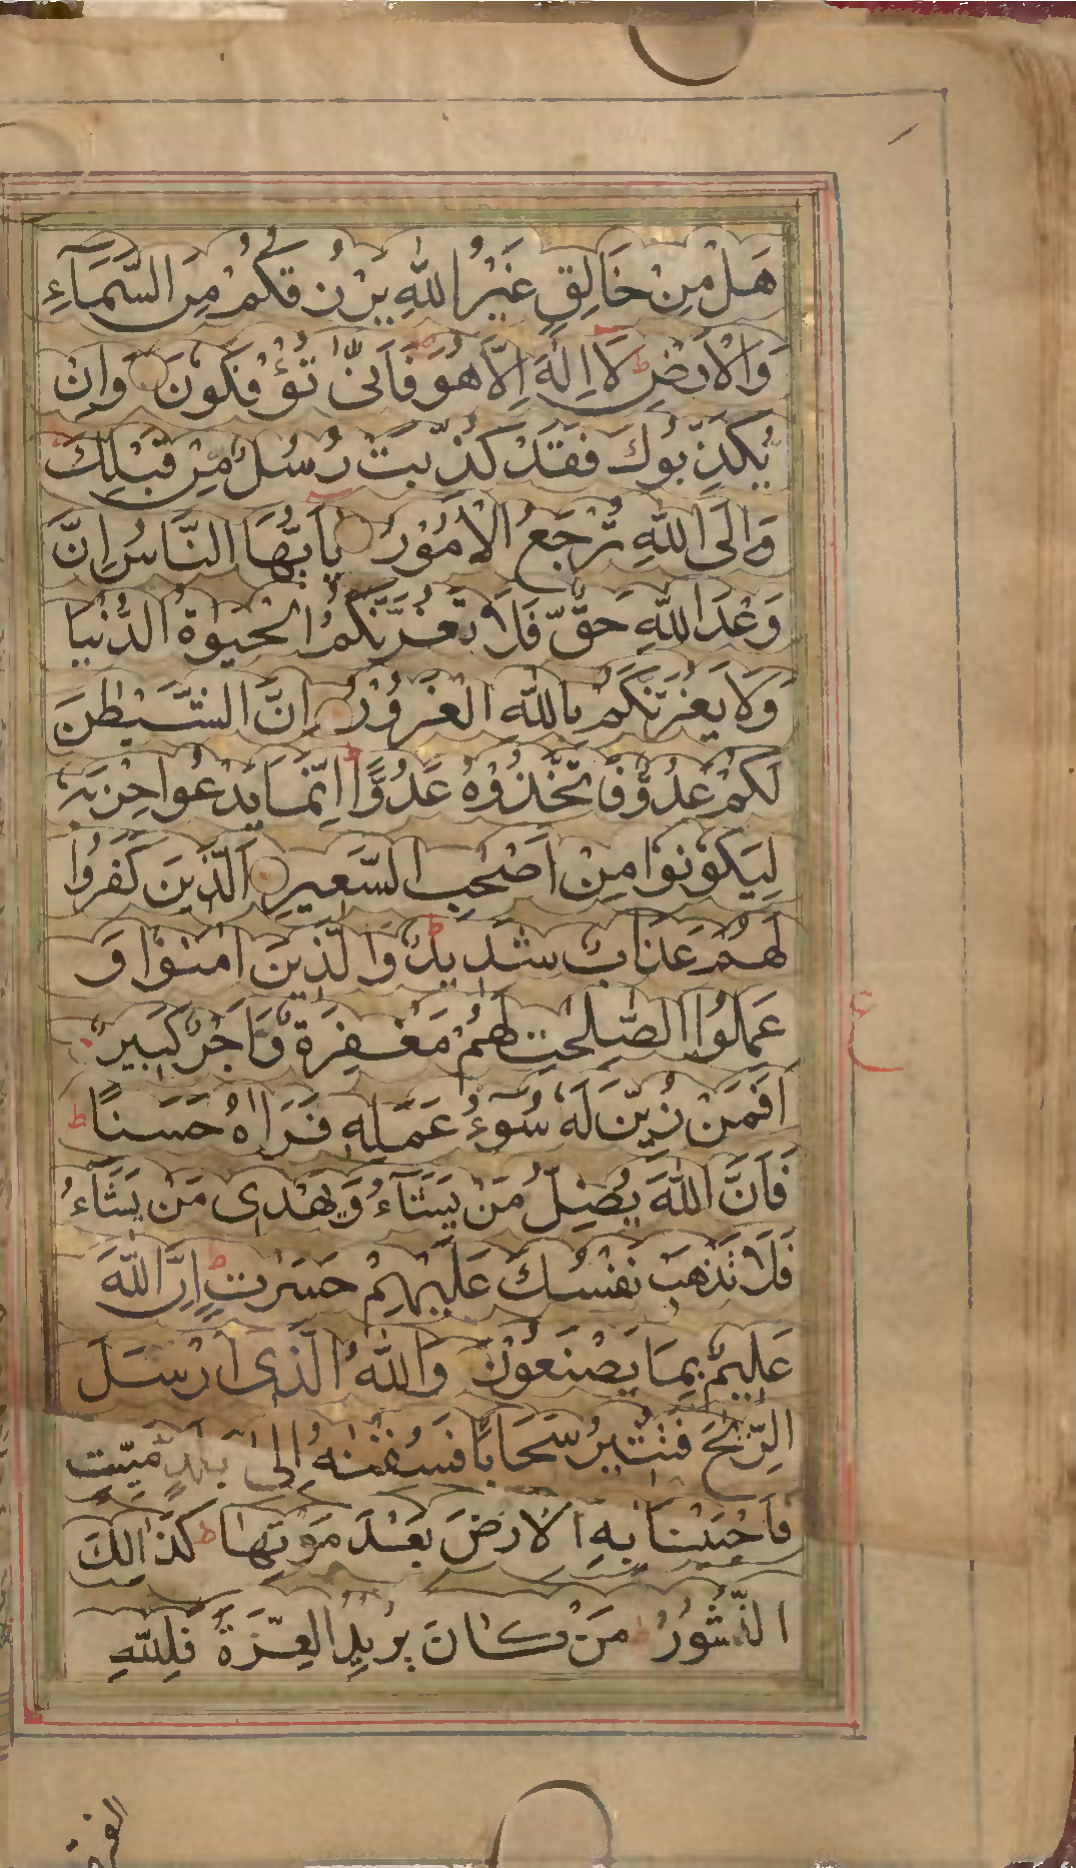 هَلْ مِنْ خَالِقٍ غَيْرُ اللّٰهِ يَرْزُقُكُمْ مِنَ السَّمَآءِ
وَالْاَرْضِ ط لَا اِلٰهَ اِلَّا هُوَ فَاَنّٰى تُؤْفَكُونَ وَاِنْ
يُكَذِّبُوكَ فَقَدْ كُذِّبَتْ رُسُلٌ مِنْ قَبْلِكَ ط
وَاِلَى اللّٰهِ تُرْجَعُ الْاُمُوْرُ يٰاَيُّهَا النَّاسُ اِنَّ
وَعْدَ اللّٰهِ حَقٌّ فَلَا تَغُرَّنَّكُمُ الْحَيٰوةُ الدُّنْيَا
وَلَا يَغُرَّنَّكُمْ بِاللّٰهِ الْغَرُوْرُ اِنَّ الشَّيْطٰنَ
لَكُمْ عَدُوٌّ فَاتَّخِذُوْهُ عَدُوًّا ط اِنَّمَا يَدْعُوا حِزْبَهٗ
لِيَكُوْنُوْا مِنْ اَصْحٰبِ السَّعِيرِ اَلَّذِيْنَ كَفَرُوْا
لَهُمْ عَذَابٌ شَدِيْدٌ ط وَالَّذِيْنَ اٰمَنُوْا وَ
عَمِلُوا الصّٰلِحٰتِ لَهُمْ مَغْفِرَةٌ وَاَجْرٌ كَبِيْرٌ
اَفَمَنْ زُيِّنَ لَهٗ سُوْٓءُ عَمَلِهٖ فَرَاٰهُ حَسَنًا ط
فَاِنَّ اللّٰهَ يُضِلُّ مَنْ يَشَآءُ وَيَهْدِى مَنْ يَشَآءُ
فَلَا تَذْهَبْ نَفْسُكَ عَلَيْهِمْ حَسَرٰتٍ ط اِنَّ اللّٰهَ
عَلِيْمٌ بِمَا يَصْنَعُوْنَ وَاللّٰهُ الَّذِى اَرْسَلَ
الرِّيٰحَ فَتُثِيْرُ سَحَابًا فَسُقْنٰهُ اِلٰى بَلَدٍ مَيِّتٍ
فَاَحْيَيْنَا بِهِ الْاَرْضَ بَعْدَ مَوْتِهَا ط كَذٰالِكَ
النُّشُوْرُ مَنْ كَانَ يُرِيْدُ الْعِزَّةَ فَلِلّٰهِ
ع